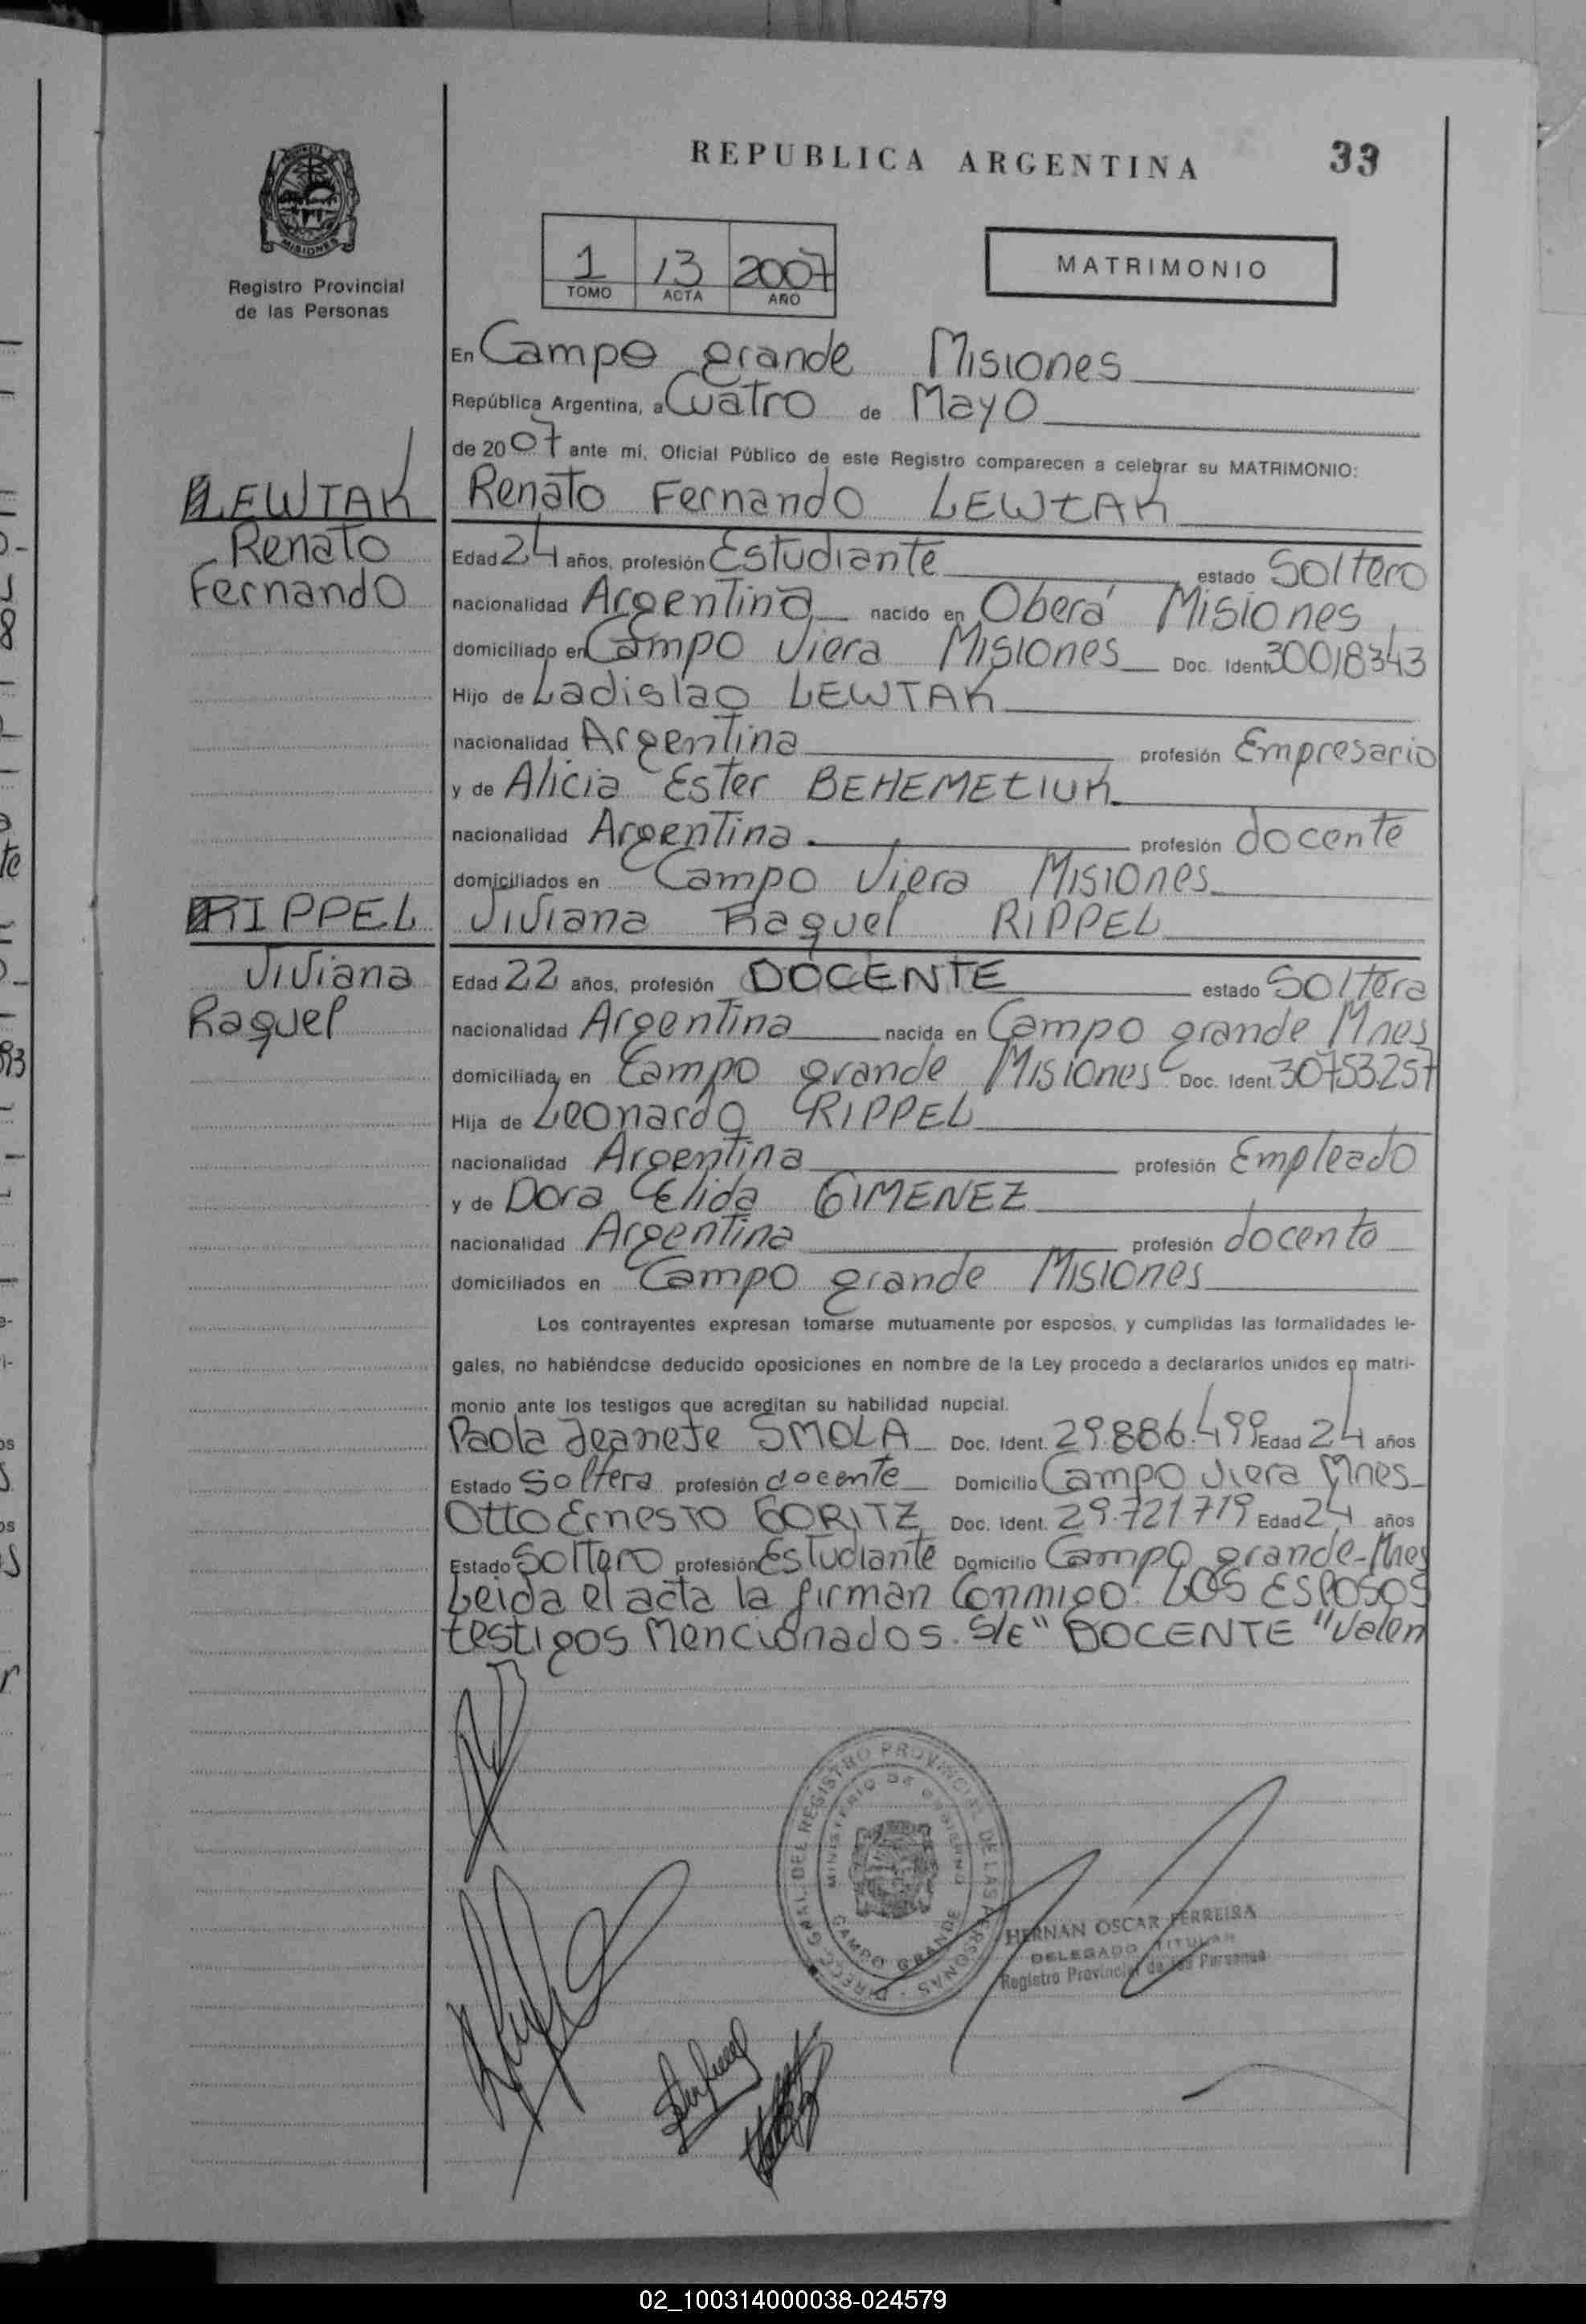 REPUBLICA ARGENTINA
33
MISIONES
Registro Provincial
de las Personas
1 13 2007
TOMO ACTA AÑO
MATRIMONIO
En Campo grande Misiones
República Argentina, a Cuatro de Mayo
de 2007 ante mi, Oficial Público de este Registro comparecen a celebrar su MATRIMONIO:
LEWTAK
Renato
Fernando
Renato Fernando LEWTAK
Edad 24 años, profesión Estudiante estado Soltero
nacionalidad Argentina nacido en Oberá Misiones
domiciliado en Campo Viera Misiones Doc. Ident. 30018343
Hijo de Ladislao LEWTAK
nacionalidad Argentina profesión Empresario
y de Alicia Ester BEHEMETIUK
nacionalidad Argentina profesión docente
domiciliados en Campo Viera Misiones
RIPPEL
Viviana
Raquel
Viviana Raquel RIPPEL
Edad 22 años, profesión DOCENTE estado Soltera
nacionalidad Argentina nacida en Campo grande Mnes
domiciliada en Campo grande Misiones Doc. Ident. 30753257
Hija de Leonardo RIPPEL
nacionalidad Argentina profesión Empleado
y de Dora Elida GIMENEZ
nacionalidad Argentina profesión docente
domiciliados en Campo grande Misiones
Los contrayentes expresan tomarse mutuamente por esposos, y cumplidas las formalidades le-
gales, no habiéndose deducido oposiciones en nombre de la Ley procedo a declararlos unidos en matri-
monio ante los testigos que acreditan su habilidad nupcial.
Paola Jeanete SMOLA Doc. Ident. 29.886.499 Edad 24 años
Estado Soltera profesión docente Domicilio Campo Viera Mnes
Otto Ernesto GORITZ Doc. Ident. 29.721719 Edad 24 años
Estado Soltero profesión Estudiante Domicilio Campo grande-Mnes
Leida el acta la firman Conmigo. LOS ESPOSOS
testigos Mencionados. S/E" DOCENTE "Valen
DIREC. GRAL. DEL REGISTRO PROVINCIAL DE LAS PERSONAS
MINISTERIO DE GOBIERNO
CAMPO GRANDE
HERNAN OSCAR FERREIRA
DELEGADO TITULAR
Registro Provincial de las Personas
02_100314000038-024579